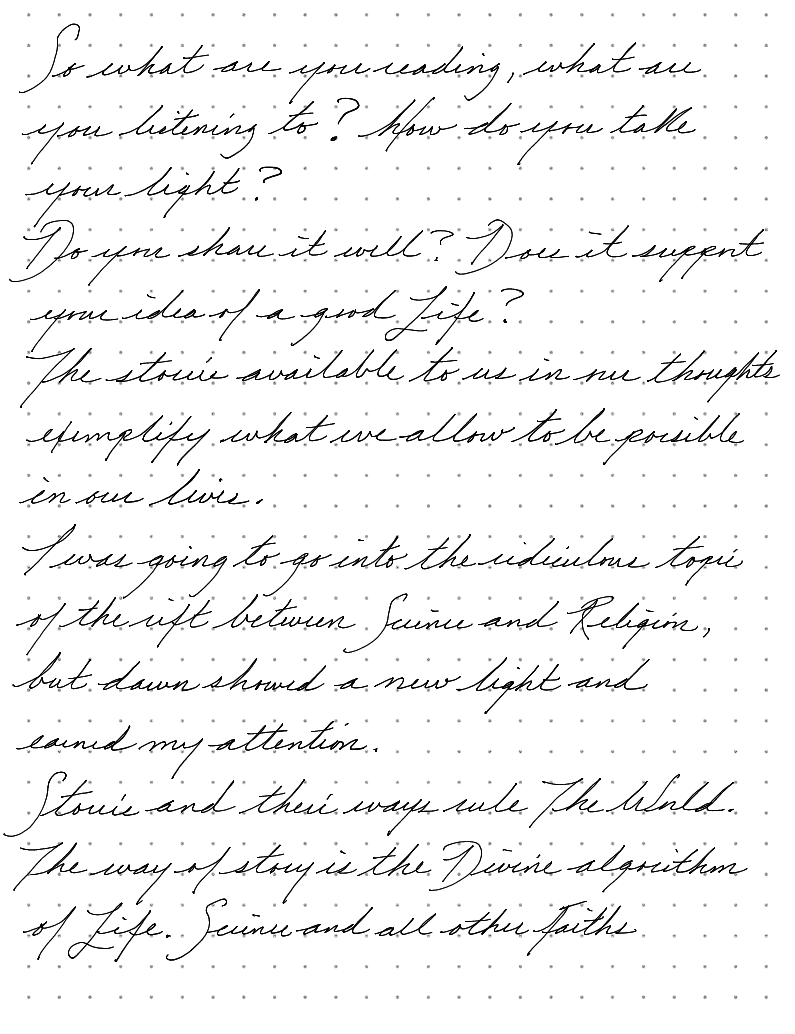 So what are you reading, what are
you listening to? How do you take
your light?
Do you share it well? Does it support
your idea of a good Life?
The stories available to us in our thoughts
exemplify what we allow to be possible
in our lives.
I was going to go into the ridiculous topic
of the rift between Science and Religion,
but dawn showed a new light and
earned my attention.
Stories and their ways rule The World.
The way of story is the Divine algorithm
of Life. Science and all other Faiths